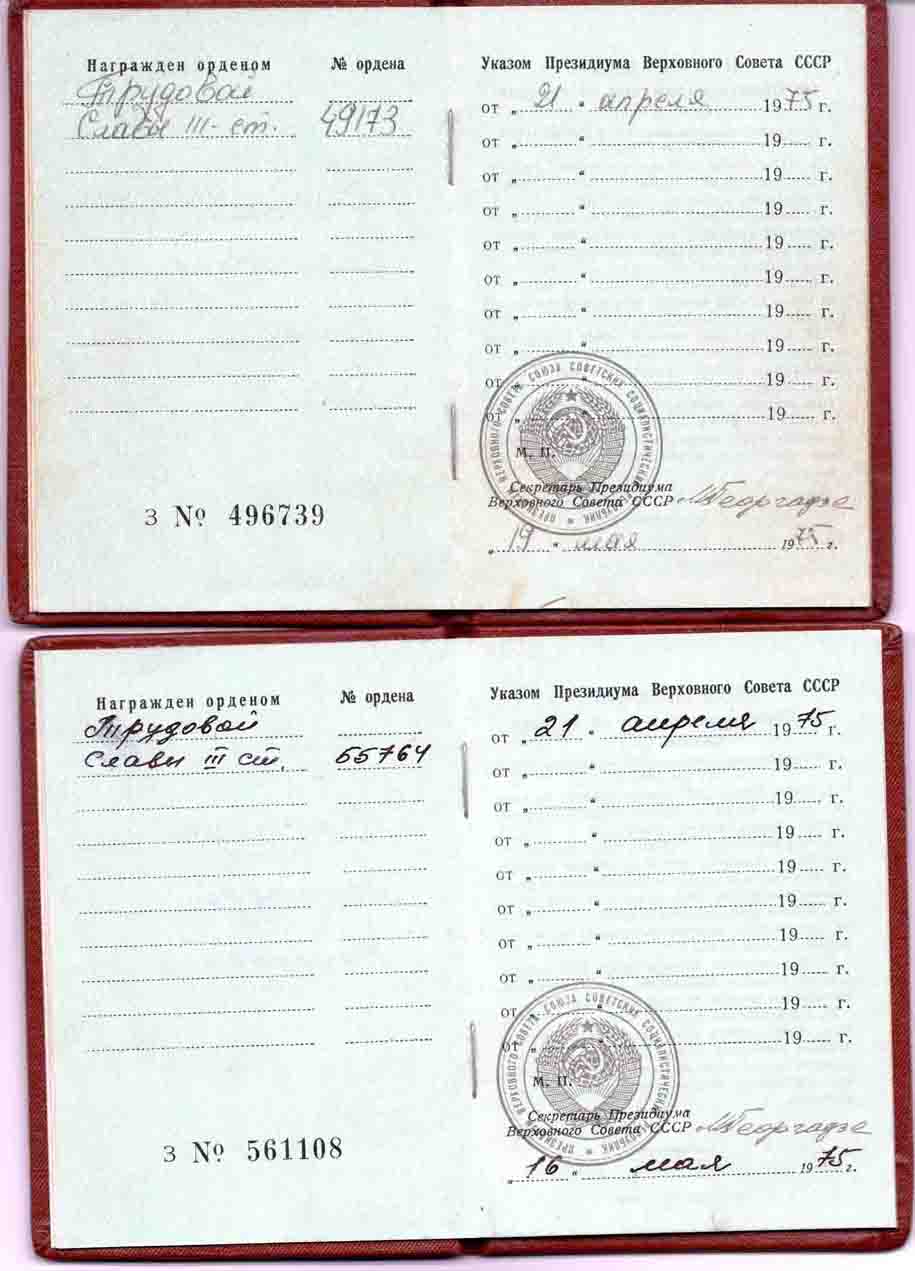 Награжден орденом № ордена
Трудовой
Славы III-ст. 49173
З № 496739
Указом Президиума Верховного Совета СССР
от „ 21 “ апреля 1975 г.
от „ “ 19 г.
от „ “ 19 г.
от „ “ 19 г.
от „ “ 19 г.
от „ “ 19 г.
от „ “ 19 г.
от „ “ 19 г.
от „ “ 19 г.
от „ “ 19 г.
ПРЕЗИДИУМ ВЕРХОВНОГО СОВЕТА СОЮЗА СОВЕТСКИХ СОЦИАЛИСТИЧЕСКИХ РЕСПУБЛИК
М. П.
Секретарь Президиума
Верховного Совета СССР М Георгадзе
„ 19 “ мая 1975 г.
Награжден орденом № ордена
Трудовой
Славы III ст. 55764
З № 561108
Указом Президиума Верховного Совета СССР
от „ 21 “ апреля 1975 г.
от „ “ 19 г.
от „ “ 19 г.
от „ “ 19 г.
от „ “ 19 г.
от „ “ 19 г.
от „ “ 19 г.
от „ “ 19 г.
от „ “ 19 г.
от „ “ 19 г.
ПРЕЗИДИУМ ВЕРХОВНОГО СОВЕТА СОЮЗА СОВЕТСКИХ СОЦИАЛИСТИЧЕСКИХ РЕСПУБЛИК
М. П.
Секретарь Президиума
Верховного Совета СССР М Георгадзе
„ 16 “ мая 1975 г.